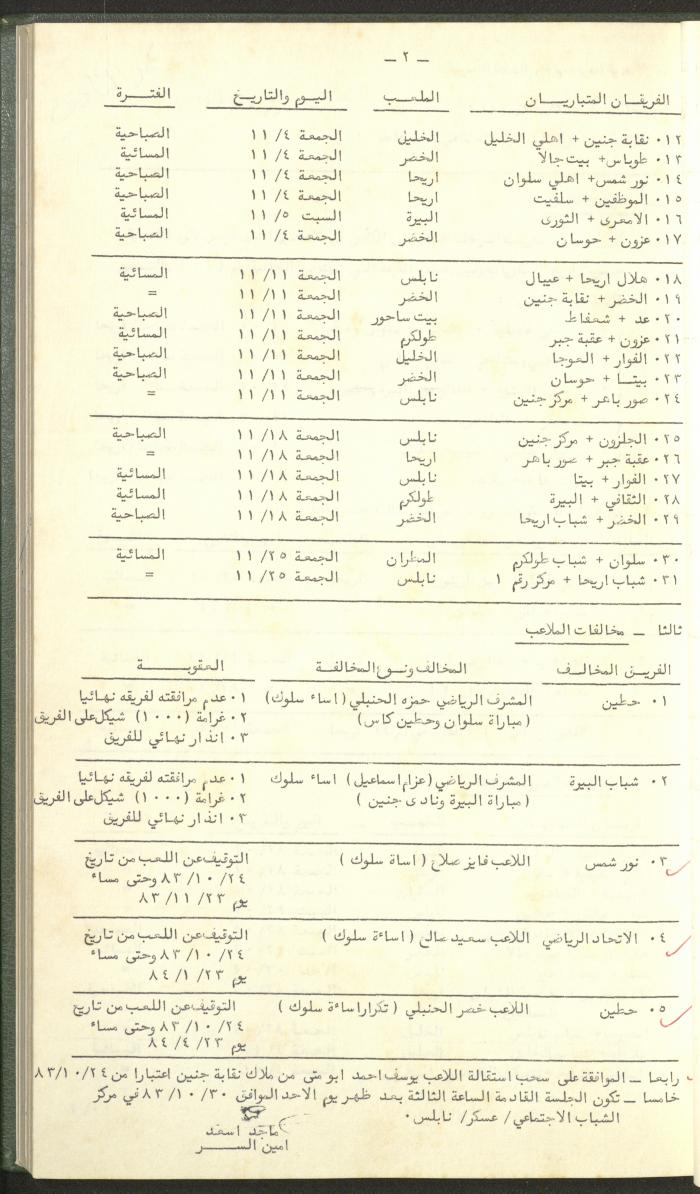 — ٢ —
الفريقان المتباريان الملعب اليوم والتاريخ الفترة
١٢. نقابة جنين + اهلي الخليل الخليل الجمعة ١١/٤ الصباحية
١٣. طوباس + بيت جالا الخضر الجمعة ١١/٤ المسائية
١٤. نور شمس + اهلي سلوان اريحا الجمعة ١١/٤ الصباحية
١٥. الموظفين + سلفيت اريحا الجمعة ١١/٤ الصباحية
١٦. الامعرى + الثورى البيرة السبت ١١/٥ المسائية
١٧. عزون + حوسان الخضر الجمعة ١١/٤ الصباحية
١٨. هلال اريحا + عيبال نابلس الجمعة ١١/١١ المسائية
١٩. الخضر + نقابة جنين الخضر الجمعة ١١/١١ =
٢٠. عد + شعفاط بيت ساحور الجمعة ١١/١١ الصباحية
٢١. عزون + عقبة جبر طولكرم الجمعة ١١/١١ المسائية
٢٢. الفوار + العوجا الخليل الجمعة ١١/١١ الصباحية
٢٣. بيتـا + حوسان الخضر الجمعة ١١/١١ الصباحية
٢٤. صور باهر + مركز جنين نابلس الجمعة ١١/١١ =
٢٥. الجلزون + مركز جنين نابلس الجمعة ١١/١٨ الصباحية
٢٦. عقبة جبر + صور باهر اريحا الجمعة ١١/١٨ =
٢٧. الفوار + بيتا نابلس الجمعة ١١/١٨ المسائية
٢٨. الثقافي + البيرة طولكرم الجمعة ١١/١٨ المسائية
٢٩. الخضر + شباب اريحا الخضر الجمعة ١١/١٨ الصباحية
٣٠. سلوان + شباب طولكرم المطران الجمعة ١١/٢٥ المسائية
٣١. شباب اريحا + مركز رقم ١ نابلس الجمعة ١١/٢٥ =
ثالثا — مخالفات الملاعب
الفريق المخالف المخالف ونوع المخالفة العقوبة
١. حطين المشرف الرياضي حمزه الحنبلي (اساء سلوك) ١. عدم مرافقته لفريقه نهائيا
(مباراة سلوان وحطين كاس) ٢. غرامة (١٠٠٠) شيكل على الفريق
٣. انذار نهائي للفريق
٢. شباب البيرة المشرف الرياضي (عزام اسماعيل) اساء سلوك ١. عدم مرافقته لفريقه نهائيا
(مباراة البيرة ونادى جنين) ٢. غرامة (١٠٠٠) شيكل على الفريق
٣. انذار نهائي للفريق
٣. نور شمس اللاعب فايز صلاح (اساة سلوك) التوقيف عن اللعب من تاريخ
٨٣/١٠/٢٤ وحتى مساء
يوم ٨٣/١١/٢٣
٤. الاتحاد الرياضي اللاعب سعيد صالح (اساءة سلوك) التوقيف عن اللعب من تاريخ
٨٣/١٠/٢٤ وحتى مساء
يوم ٨٤/١/٢٣
٥. حطين اللاعب خضر الحنبلي (تكرار اساءة سلوك) التوقيف عن اللعب من تاريخ
٨٣/١٠/٢٤ وحتى مساء
يوم ٨٤/٤/٢٣
رابعا — الموافقة على سحب استقالة اللاعب يوسف احمد ابو متى من ملاك نقابة جنين اعتبارا من ٨٣/١٠/٢٤
خامسا — تكون الجلسة القادمة الساعة الثالثة بعد ظهر يوم الاحد الموافق ٨٣/١٠/٣٠ في مركز
الشباب الاجتماعي/ عسكر/ نابلس.
ماجد اسعد
امين السـر